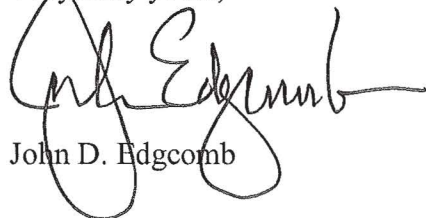 John D. Edgcomb
John D. Edgcomb